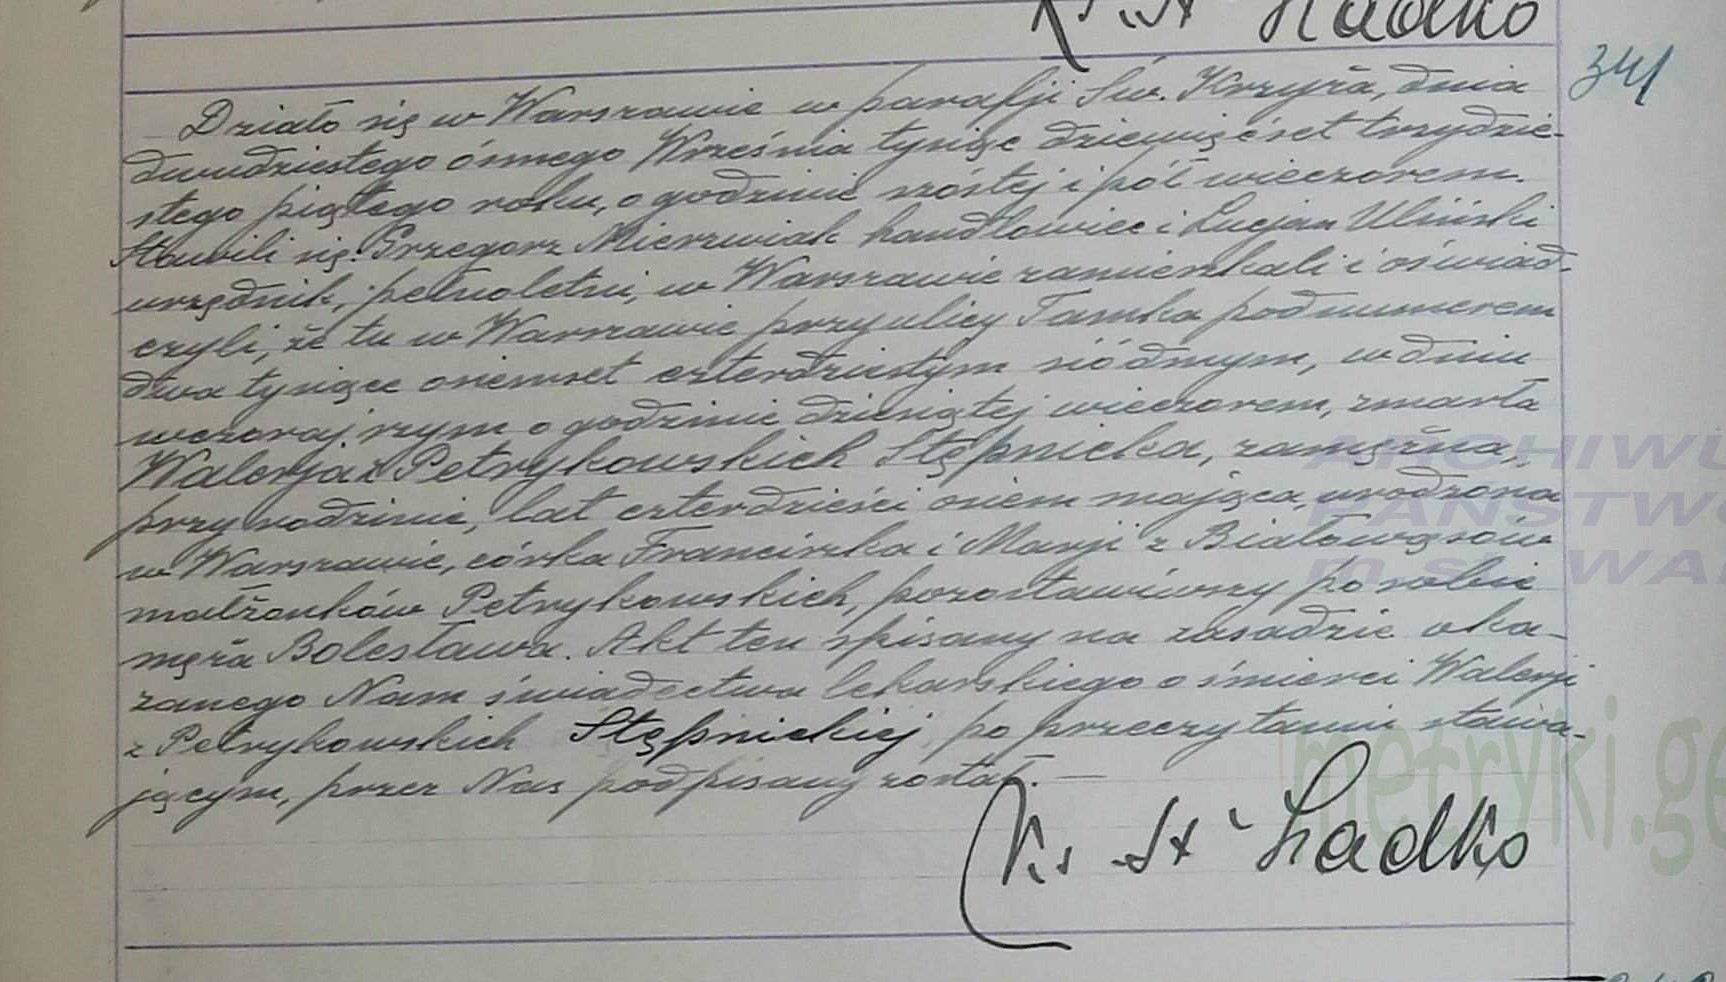 Ks. St Żadko
341
Działo się w Warszawie w parafji Św. Krzyża, dnia
dwudziestego ósmego Września tysiąc dziewięćset trzydzie-
stego piątego roku, o godzinie szóstej i pół wieczorem.
Stawili się: Grzegorz Mierzwiak handlowiec i Lucjan Uliński
urzędnik, pełnoletni, w Warszawie zamieszkali i oświad-
czyli, że tu w Warszawie przy ulicy Tamka pod numerem
dwa tysiące osiemset czterdziestym siódmym, w dniu
wczorajszym o godzinie dziesiątej wieczorem, zmarła
Walerja z Petrykowskich Stępnicka, zamężna,
przy rodzinie, lat czterdzieści osiem mająca, urodzona
w Warszawie, córka Franciszka i Marji z Białowąsów
małżonków Petrykowskich, pozostawiwszy po sobie
męża Bolesława. Akt ten spisany na zasadzie oka-
zanego Nam świadectwa lekarskiego o śmierci Walerji
z Petrykowskich Stępnickiej, po przeczytaniu stawa-
jącym, przez Nas podpisany został. —
Ks. St Żadko
ARCHIWU
PAŃSTWO
m.st.WAR
metryki.ge